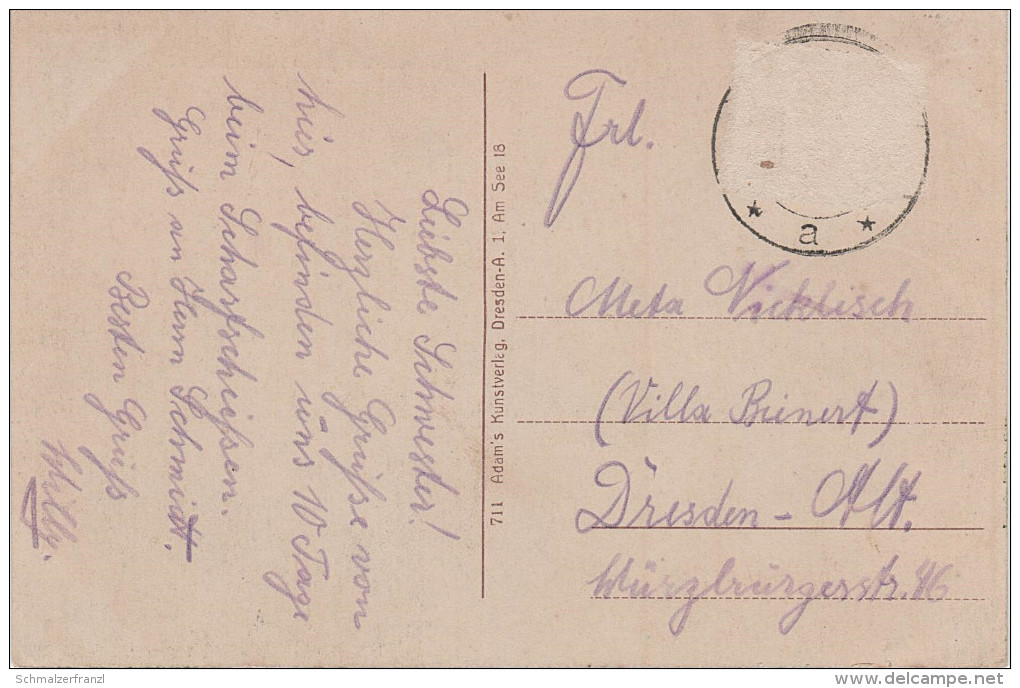 Liebste Schwester!
Herzliche Grüße von
hier, befinden uns 10 Tage
beim Scharfschießen.
Gruß an Herrn Schmidt.
Besten Gruß
Willy.
711 Adam's Kunstverlag, Dresden-A. 1, Am See 18
* a *
Frl.
Meta Nicklisch
(Villa Bienert)
Dresden - Alt.
Würzburgerstr. 46
Schmalzerfranzl